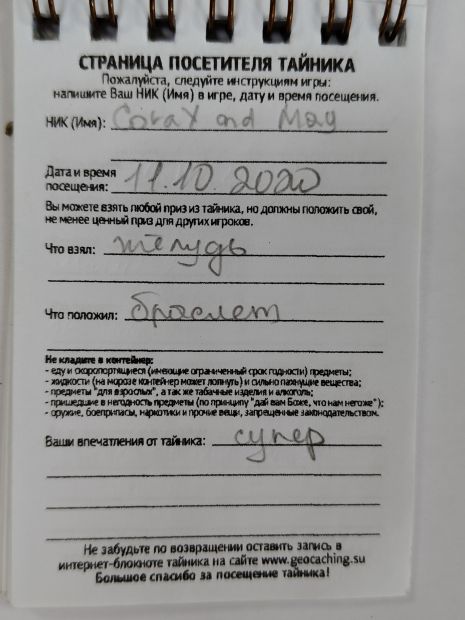 СТРАНИЦА ПОСЕТИТЕЛЯ ТАЙНИКА
Пожалуйста, следуйте инструкциям игры:
напишите Ваш НИК (Имя) в игре, дату и время посещения.
НИК (Имя): Corax and May
Дата и время
посещения: 11.10.2020
Вы можете взять любой приз из тайника, но должны положить свой,
не менее ценный приз для других игроков.
Что взял: жёлудь
Что положил: браслет
Не кладите в контейнер:
- еду и скоропортящиеся (имеющие ограниченный срок годности) предметы;
- жидкости (на морозе контейнер может лопнуть) и сильно пахнущие вещества;
- предметы "для взрослых", а так же табачные изделия и алкоголь;
- пришедшие в негодность предметы (по принципу "дай вам Боже, что нам негоже");
- оружие, боеприпасы, наркотики и прочие вещи, запрещенные законодательством.
Ваши впечатления от тайника: супер
Не забудьте по возвращении оставить запись в
интернет-блокноте тайника на сайте www.geocaching.su
Большое спасибо за посещение тайника!